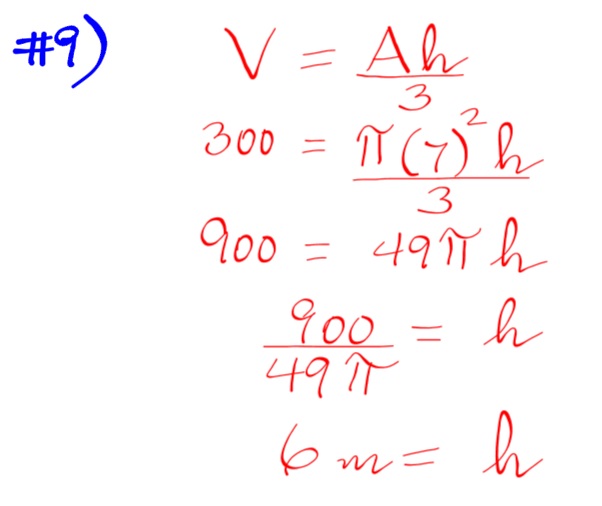 #9)
V = Ah/3
300 = π(7)²h/3
900 = 49πh
900/49π = h
6 m = h